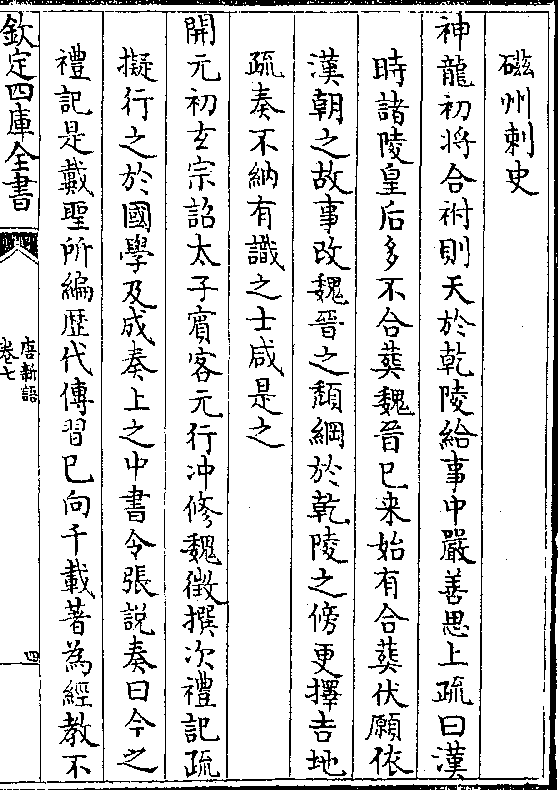 磁州刺史
神龍初将合祔則天於乾陵給事中嚴善思上疏曰漢
時諸陵皇后多不合葬魏晉已来始有合葬伏願依
漢朝之故事改魏晉之頽綱於乾陵之傍更擇吉地
疏奏不納有識之士咸是之
開元初玄宗詔太子賓客元行冲修魏徵撰次禮記疏
擬行之於國學及成奏上之中書令張説奏曰今之
禮記是戴聖所編歴代傳習已向千載著為經教不
欽定四庫全書
唐新語
卷七
四